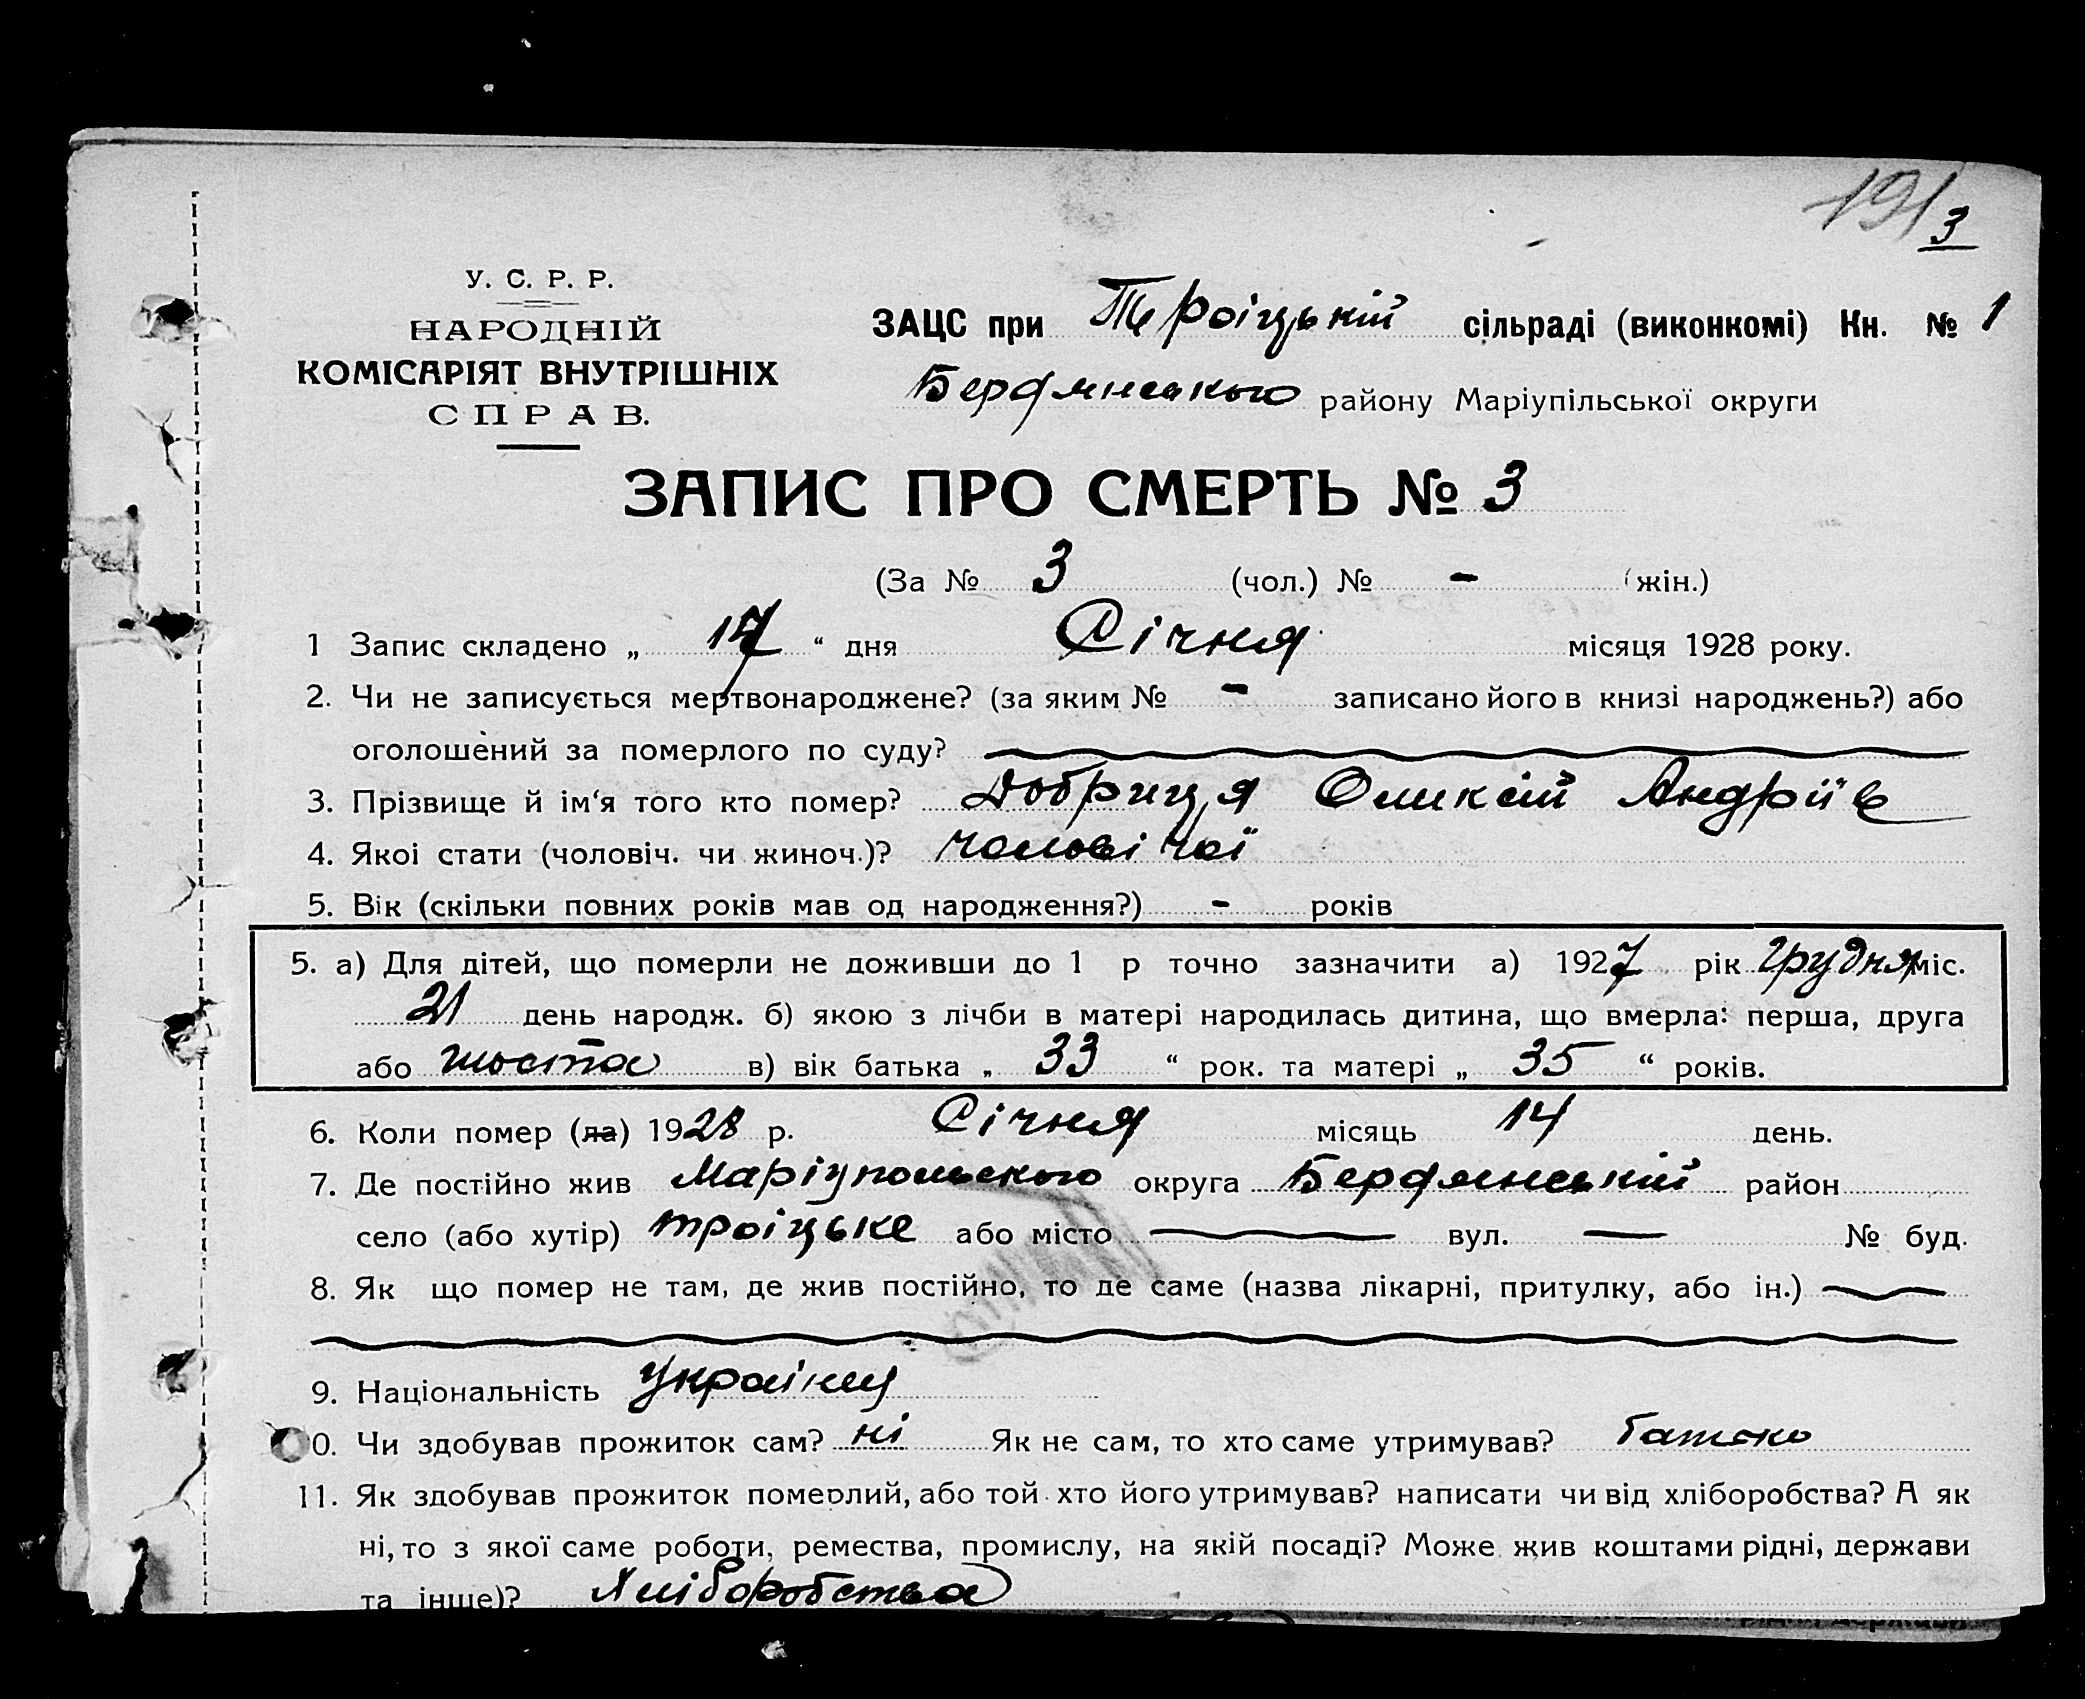 191 3
У. С. Р. Р.
НАРОДНІЙ
КОМІСАРІЯТ ВНУТРІШНІХ
СПРАВ.
ЗАЦС при Троіцькій сільраді (виконкомі) Кн. № 1
Бердянського району Маріупільської округи
ЗАПИС ПРО СМЕРТЬ № 3
(За № 3 (чол.) № - (жін.)
1 Запис складено „ 17 “ дня Січня місяця 1928 року.
2. Чи не записується мертвонароджене? (за яким № - записано його в книзі народжень?) або
оголошений за померлого по суду?
3. Прізвище й ім‘я того кто помер? Добриця Оликсій Андріїв
4. Якоі стати (чоловіч. чи жиноч.)? чоловічої
5. Вік (скільки повних років мав од народження?) - років
5. а) Для дітей, що померли не доживши до 1 р точно зазначити а) 1927 рік грудня міс.
21 день народж. б) якою з лічби в матері народилась дитина, що вмерла: перша, друга
або шоста в) вік батька „ 33 “ рок. та матері „ 35 “ років.
6. Коли помер (ла) 1928 р. Січня місяць 14 день.
7. Де постійно жив Маріупольського округа Бердянський район
село (або хутір) троіцьке або місто — вул. — № буд.
8. Як що помер не там, де жив постійно, то де саме (назва лікарні, притулку, або ін.)
9. Національність україниц
10. Чи здобував прожиток сам? ні Як не сам, то хто саме утримував? батько
11. Як здобував прожиток померлий, або той хто його утримував? написати чи від хліборобства? А як
ні, то з якої саме роботи, ремества, промислу, на якій посаді? Може жив коштами рідні, держави
та інше)? Хліборобства